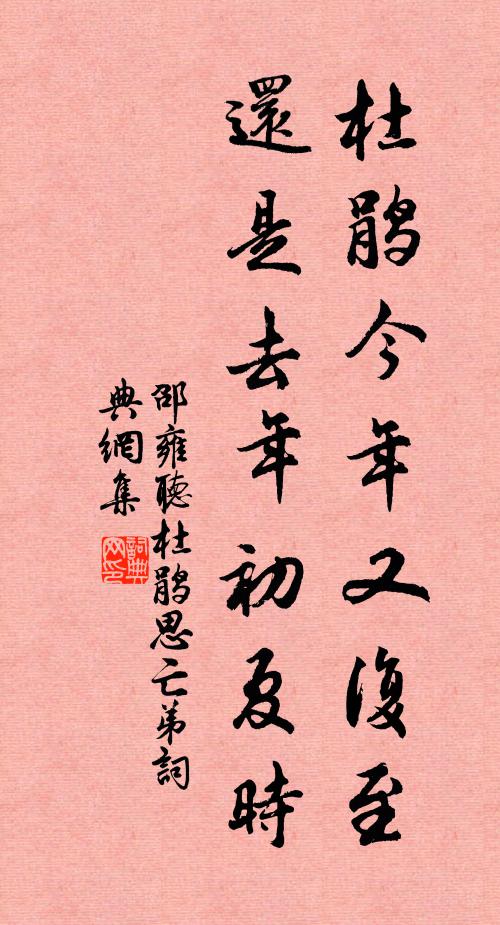 杜鹃今年又復至
還是去年初夏時
邵雍聽杜鹃思亡弟詞
典網集
詞典
网印